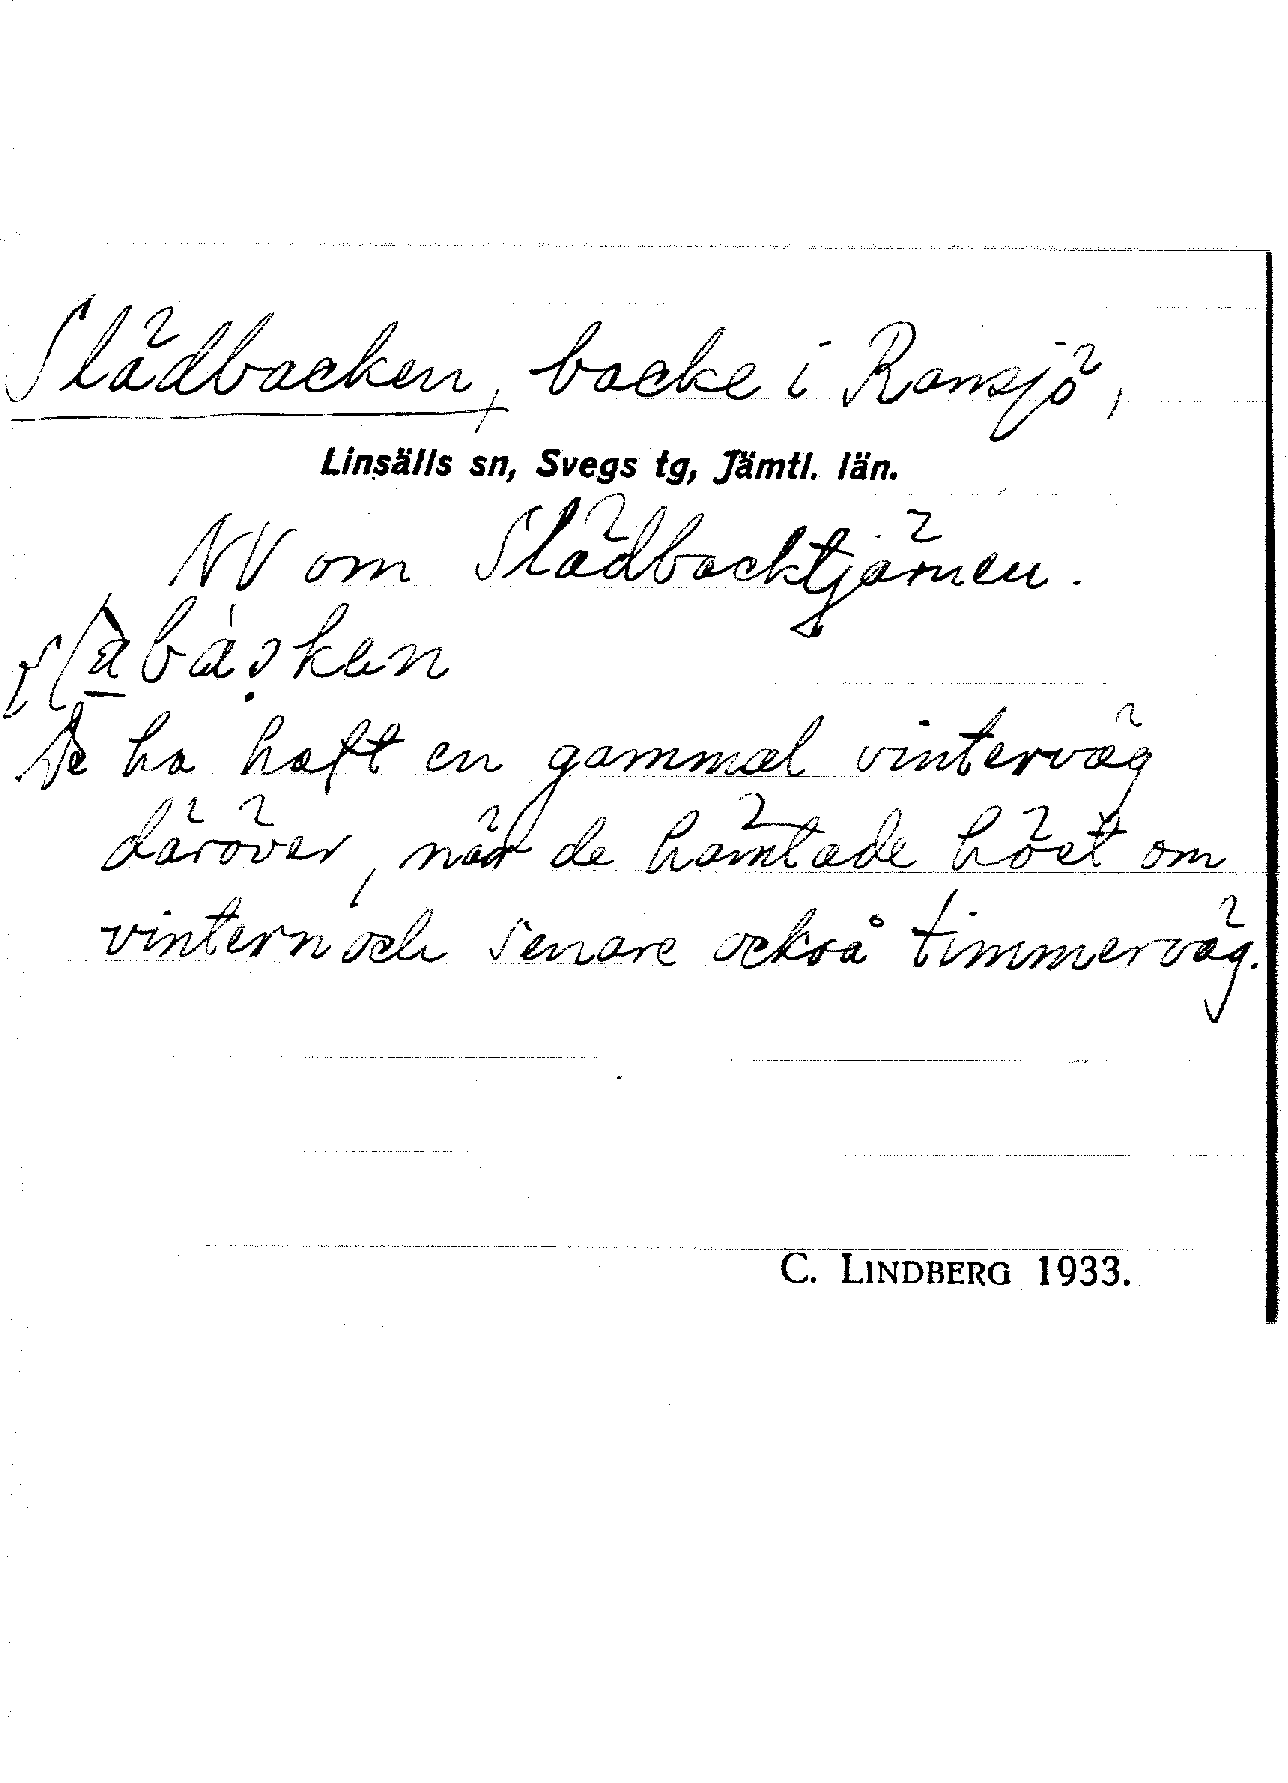 Slädbacken, backe i Ransjö,
Linsälls sn, Svegs tg, Jämtl. län.
NV om Slädbacktjärnen.
De ha haft en gammal vinterväg
däröver, när de hämtade höet om
vintern och senare också timmerväg.
C. LINDBERG 1933.